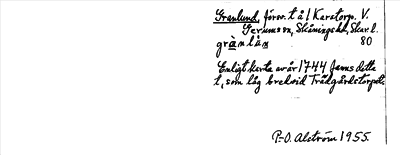 Granlund, försv. t å l Karstorp. V.
Gerums sn, Skånings hd, Skar. l.
grànlån 80
Enligt karta av år 1744 fanns detta
t, som låg bredvid Trädgårdstorpet.
P-O. Alström 1955.